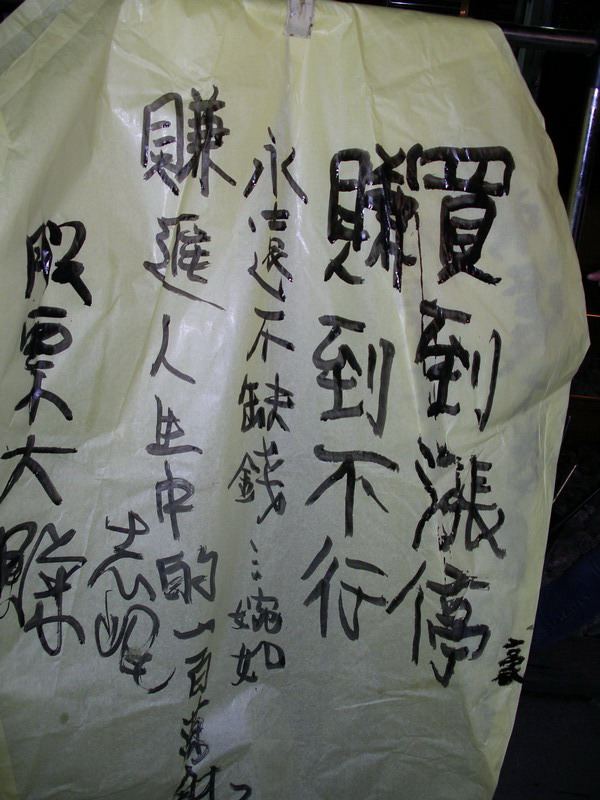 買到漲停
賺到不行
永遠不缺錢…婉如
賺進人生中的一百萬
股票大賺